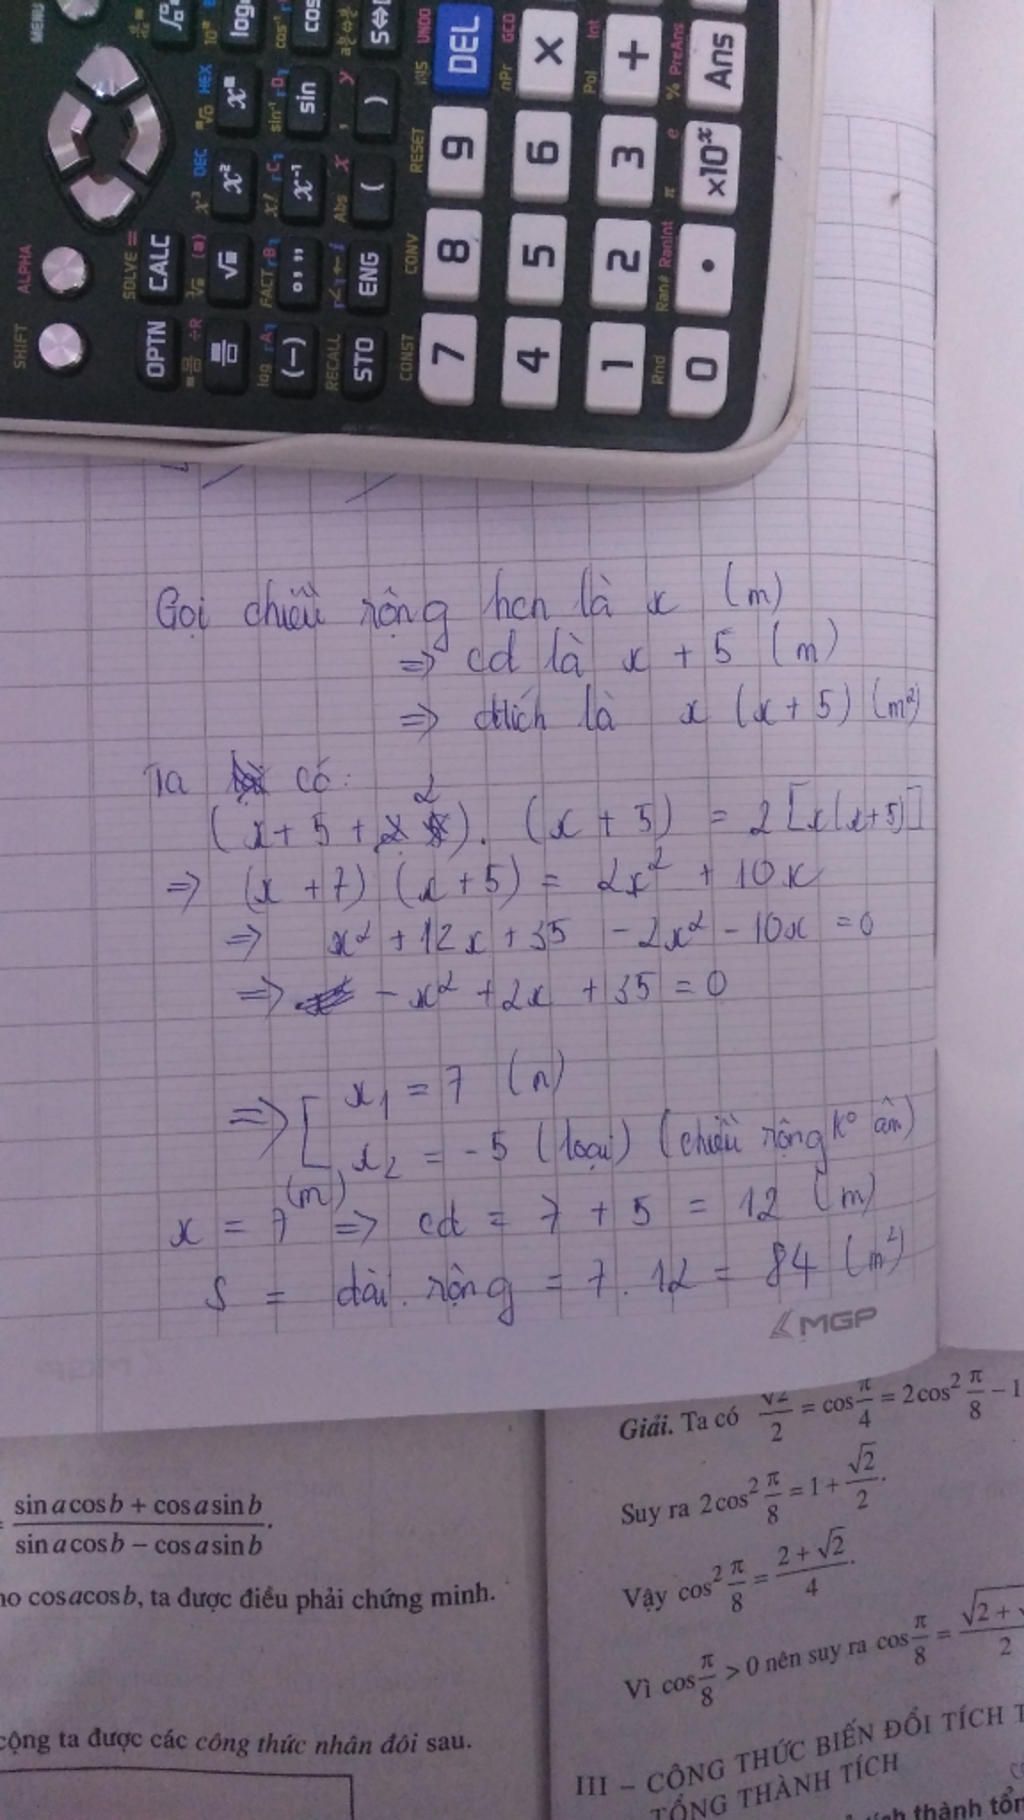 SHIFT
ALPHA
MENU
SOLVE =
OPTN
CALC
log
cos
x²
sin
x⁻¹
(−)
ENG
STO
S⇔D
RECALL
FACT
Abs
CONST
CONV
RESET
INS
UNDO
nPr
GCD
Pol
Int
Rnd
Ran#
RanInt
π
e
%
PreAns
7
8
9
DEL
4
5
6
×
1
2
3
+
0
.
×10ˣ
Ans
Gọi chiều rộng hcn là x (m)
=> cd là x + 5 (m)
=> dtích là x (x + 5) (m²)
Ta có:
(x + 5 + 2) . (x + 5) = 2 [x(x+5)]
=> (x + 7) (x + 5) = 2x² + 10x
=> x² + 12x + 35 - 2x² - 10x = 0
=> - x² + 2x + 35 = 0
=> [ x₁ = 7 (n)
x₂ = - 5 (loại) (chiều rộng k° âm)
x = 7 (m) => cd = 7 + 5 = 12 (m)
S = dài . rộng = 7 . 12 = 84 (m²)
MGP
= (sin a cos b + cos a sin b) / (sin a cos b − cos a sin b).
cosacosb, ta được điều phải chứng minh.
cộng ta được các công thức nhân đôi sau.
Giải. Ta có √2/2 = cos π/4 = 2cos² π/8 − 1
Suy ra 2cos² π/8 = 1 + √2/2.
Vậy cos² π/8 = (2 + √2)/4.
Vì cos π/8 > 0 nên suy ra cos π/8 = √2 + / 2
III – CÔNG THỨC BIẾN ĐỔI TÍCH
TỔNG THÀNH TÍCH
thành